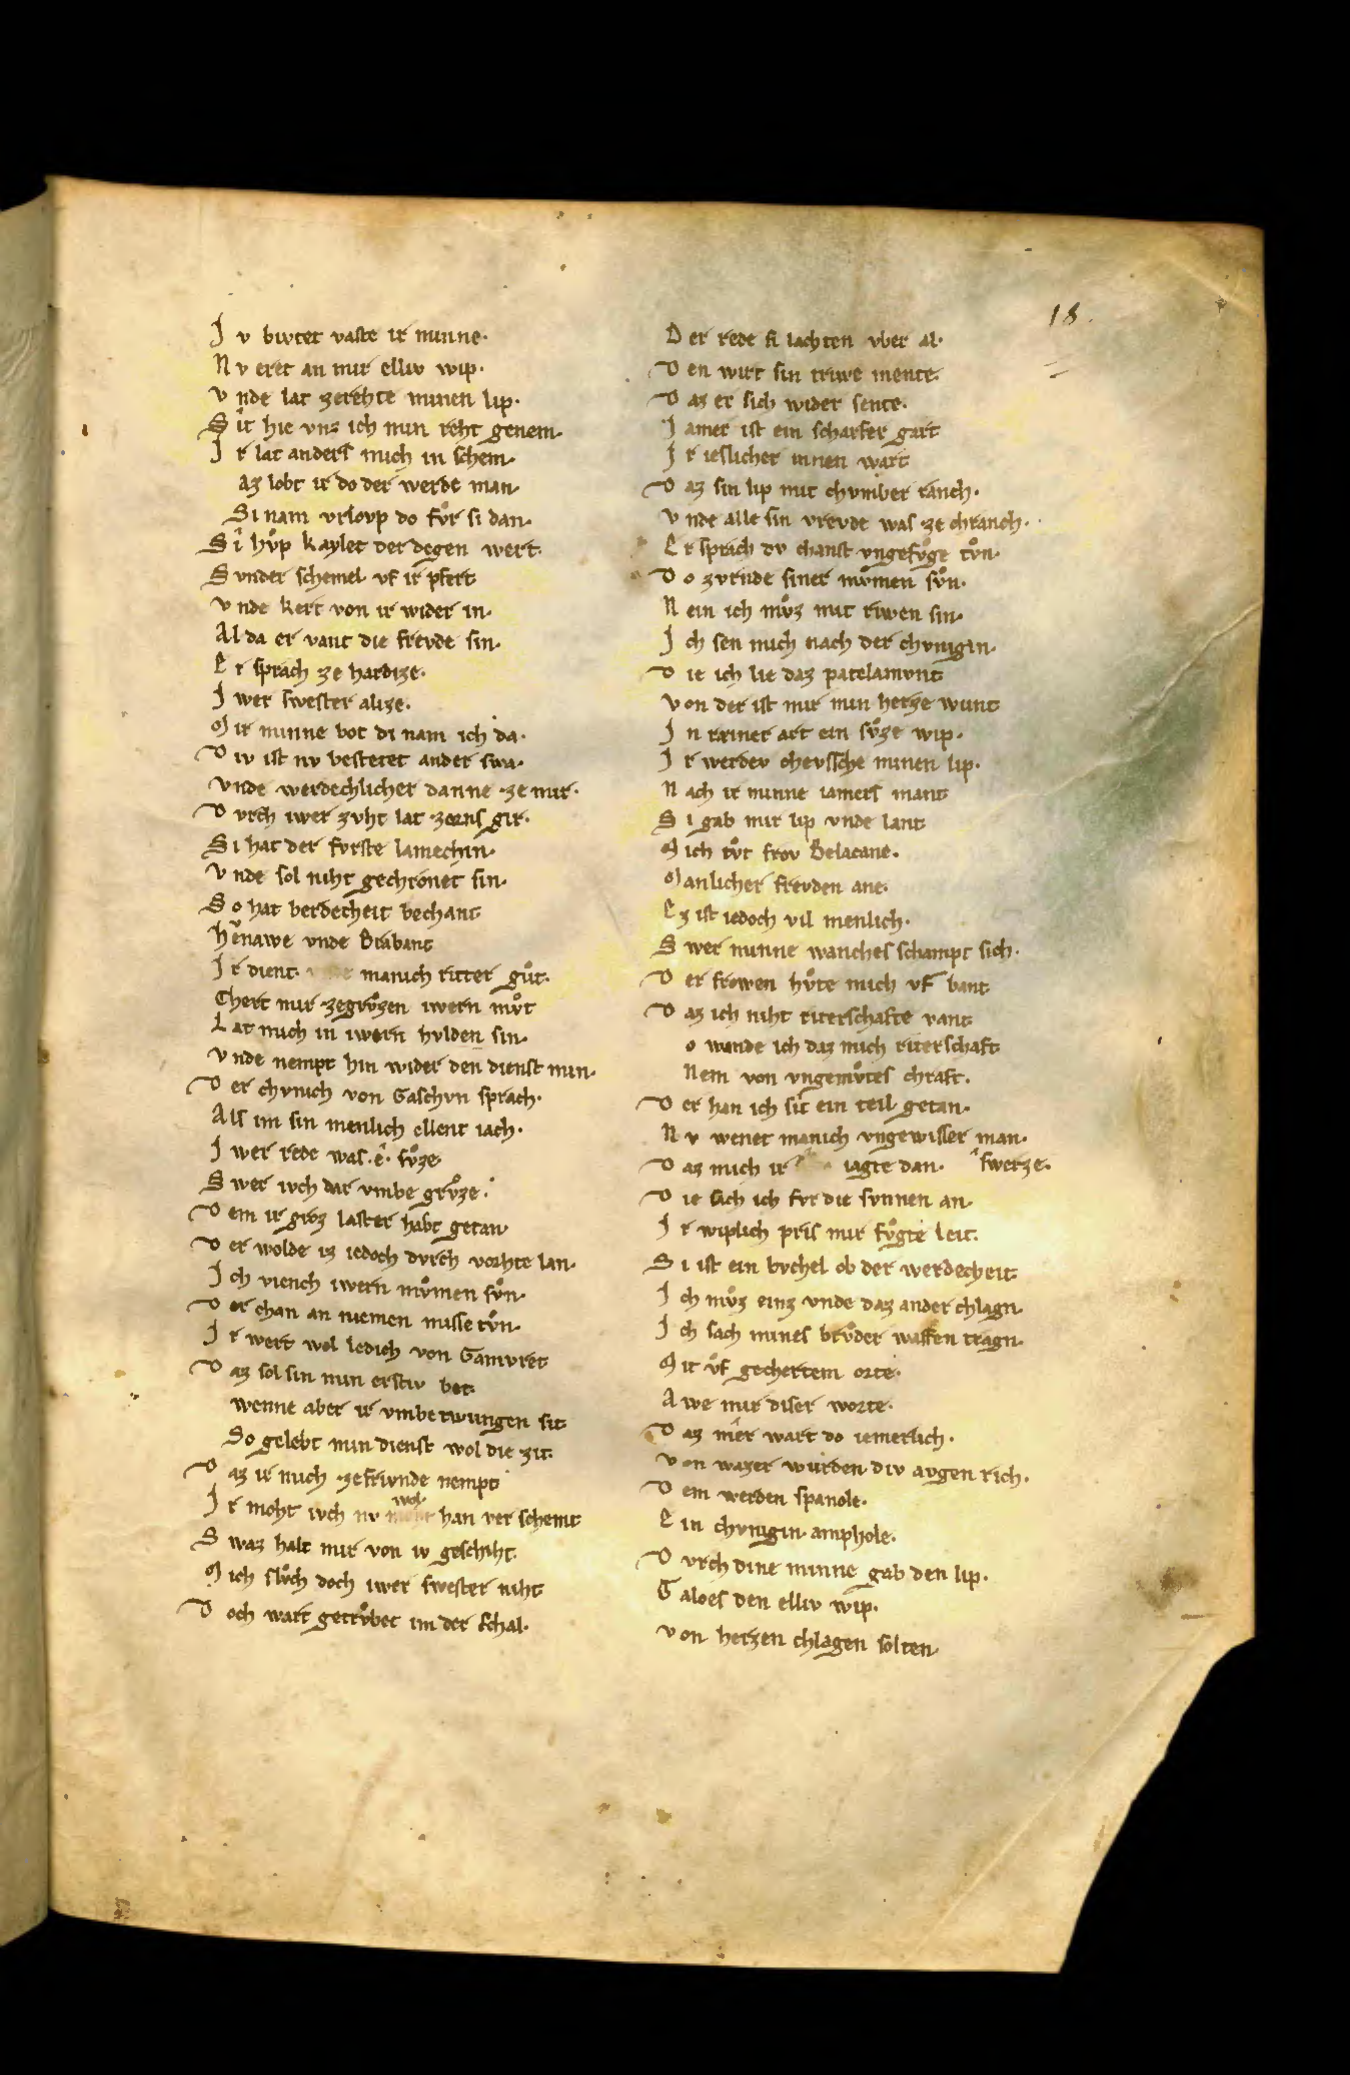 18.
J v bivtet vaste ir minne·
N v eret an mir elliv wip·
V nde lat zerehte minen lip·
S it hie vnz ich min reht genem·
J r lat anders mich in schem·
az lobt ir do der werde man·
Si nam vrlovp do fvͦr si dan·
Si hvͦp kaylet der degen wert·
S vnder schemel vf ir pfert
V nde kert von ir wider in·
Al da er vant die frevde sin·
E r sprach ze hardize·
J wer swester alize·
M ir minne bot di nam ich da·
D iv ist nv bestetet ander swa·
Vnde werdechlicher danne ze mir·
D vrch iwer zvht lat zorns gir·
Si hat der fvrste lamechin·
V nde sol niht gechronet sin·
S o hat verdecheit bechant
henawe vnde Brabant
J r dient manich ritter gvͦt·
Chert mir zegrvͦzen iwern mvͦt
L at mich in iwern hvlden sin·
V nde nempt hin wider den dienst min·
D er chvnich von Gaschvn sprach·
Als im sin menlich ellent iach·
J wer rede was·e·svͦze
S wer ivch dar vmbe grvͦze·
D em ir groz laster habt getan·
D er wolde iz iedoch dvrch vorhte lan·
J ch viench iwern mvͦmen svͦn·
D er chan an niemen misse tvͦn·
J r wert wol ledich von Gamvret
D az sol sin min erstiv bet
wenne aber ir vmbetwungen sit
So gelebt min dienst wol die zit
D az ir mich zefrivnde nempt
J r moht ivch nv wol han verschemt
S waz halt mir von iv geschiht·
M ich slvͦch doch iwer swester niht
D och wart getrvͦbet im der schal·
D er rede si lachten vber al·
D en wirt sin triwe mente·
D az er sich wider sente·
J amer ist ein scharfer gart
J r ieslicher innen wart
D az sin lip mit chvmber ranch·
V nde alle sin vrevde was ze chranch·
E r sprach dv chanst vngefvͦge tvͦn·
D o zvrnde siner mvͦmen svͦn·
N ein ich mvͦz mit riwen sin·
J ch sen mich nach der chvnigin·
D ie ich lie daz patelamvnt
Von der ist mir min herze wunt
J n reiner art ein svͦze wip·
J r werdev chevssche minen lip·
N ach ir minne iamers mant
S i gab mir lip vnde lant
M ich tvͦt frov Belacane·
Manlicher frevden ane·
E z ist iedoch vil menlich·
S wer minne wanches schampt sich·
D er frowen hvͦte mich vf bant
D az ich niht riterschafte vant
o wande ich daz mich riterschaft
Nem von vngemvͦtes chraft·
D er han ich sit ein teil getan·
N v wenet manich vngewisser man·
D az mich ir iagte dan· swerze·
D ie sach ich fvr die svnnen an·
J r wiplich pris mir fvͦgte leit·
S i ist ein bvchel ob der werdecheit
J ch mvͦz einz vnde daz ander chlagn·
J ch sach mines brvͦder waffen tragn·
M it vf gechertem orte·
A we mir diser worte·
D az mer wart do iemerlich·
Von wazer wurden div avgen rich·
D em werden spanole·
E in chvnigin·amphole·
D vrch dine minne gab den lip·
G aloes den elliv wip·
Von herzen chlagen solten·